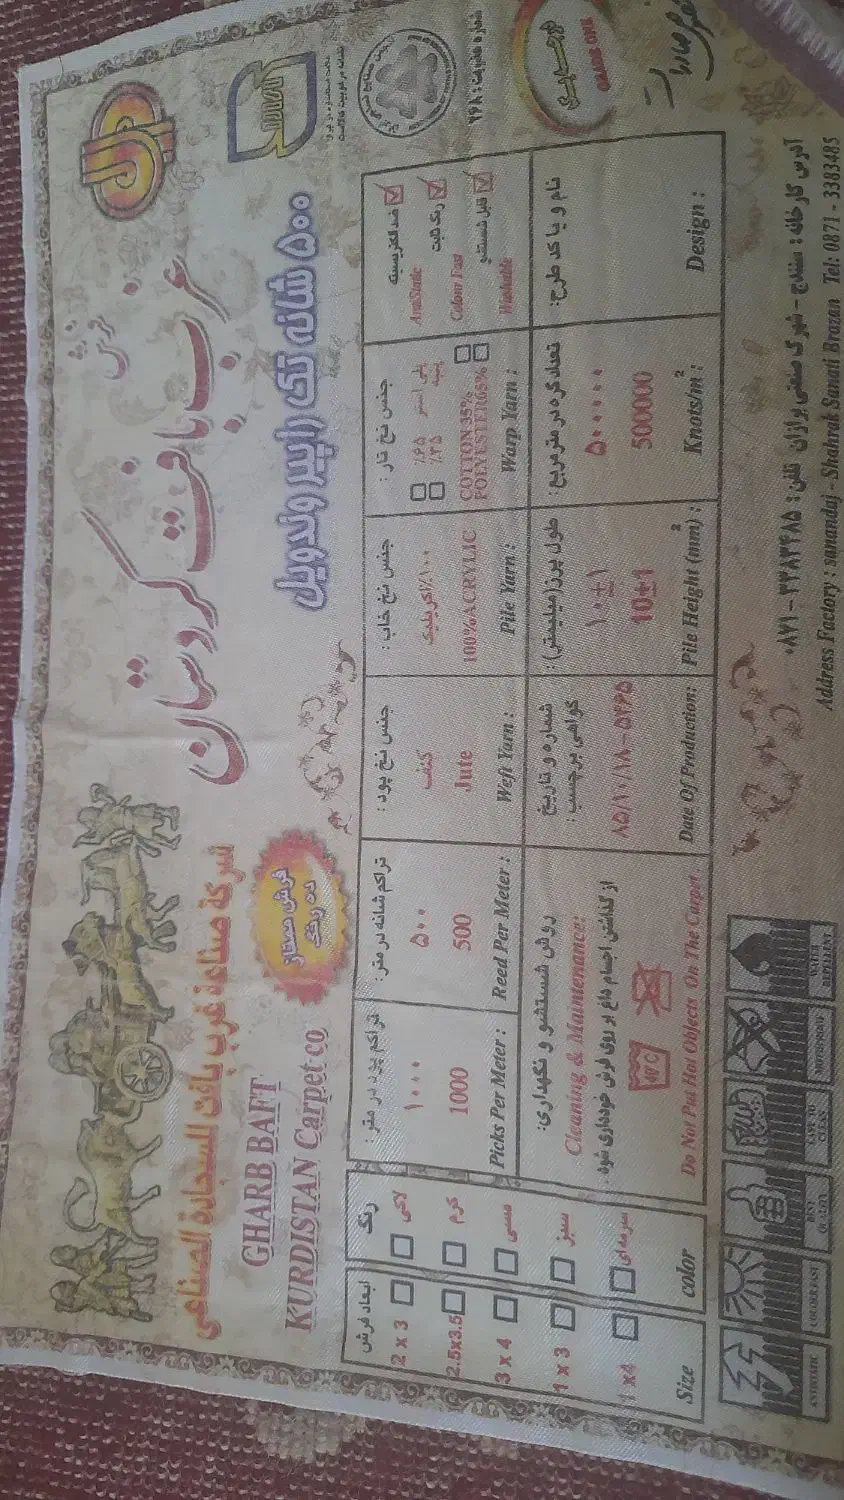 فرش
غرب بافت کردستان
۵۰۰ شانه تک راپیر وندویل
شركة صناعة غرب بافت للسجادة الصناعي
GHARB BAFT
KURDISTAN Carpet co
فرش ممتاز
ده رنگ
شماره عضویت: ۲۶۸
درجه یک
GRADE ONE
ابعاد فرش
رنگ
2 x 3
لاکی
2.5x3.5
کرم
3 x 4
مسی
1 x 3
سبز
1 x4
سرمه‌ای
Size
color
تراکم پود در متر :
۱۰۰۰
1000
Picks Per Meter :
تراکم شانه در متر :
۵۰۰
500
Reed Per Meter :
جنس نخ پود :
کنف
Jute
Weft Yarn :
جنس نخ خاب :
۱۰۰٪ اکریلیک
100%ACRYLIC
Pile Yarn :
جنس نخ تار :
٪۶۵ پلی استر
٪۳۵ پنبه
COTTON 35%
POLYESTER65%
Warp Yarn :
ضدالکتریسیته
AntiStatic
رنگ ثابت
Colour Fast
قابل شستشو
Washable
روش شستشو و نگهداری:
Cleaning & Maintenance:
از گذاشتن اجسام داغ بر روی فرش خودداری شود .
40 C
Do Not Put Hot Objects On The Carpet.
شماره و تاریخ
گواهی برچسب :
۸۵/۱۰/۱۸-۵۴۶۵
Date Of Production:
طول پرز(میلیمتر) :
۱۰±۱
10±1
Pile Height (mm)² :
تعداد گره در متر مربع :
۵۰۰۰۰۰
500000
Knots/m² :
نام و یا کد طرح:
Design :
ANTISTATIC
COLOURE FAST
BEST QUALITY
EASY TO CLEAN
MOTHPROOF
WATER REPELENT
آدرس کارخانه : سنندج - شهرک صنعتی برازان تلفن: ۳۳۸۳۴۸۵ - ۰۸۷۱
Address Factory : sanandaj - Shahrak Sanati Brazan Tel: 0871 - 3383485